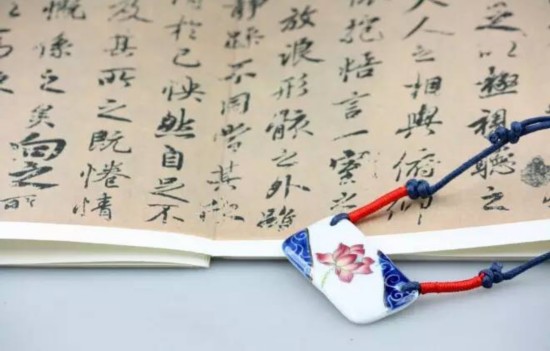 足以極視聽之
夫人之相與俯仰
懷抱悟言一室之
放浪形骸之外雖
靜躁不同當其欣
於己怏然自足不
及其所之既惓情
慨係之矣向之